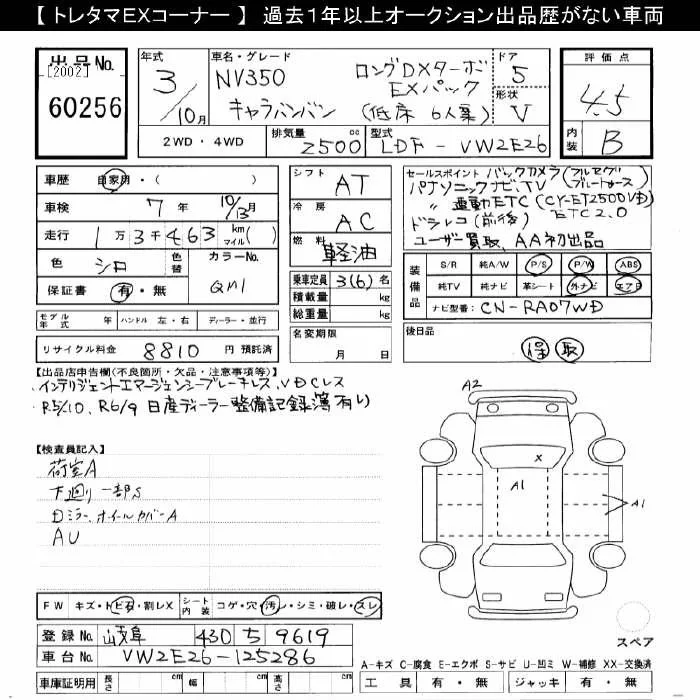 【 トレタマEXコーナー 】 過去1年以上オークション出品歴がない車両
出品No. [2002] 60256
年式 3/10月
車名・グレード NV350 キャラバンバン ロングDXターボ EXパック (低床 6人乗)
ドア 5
形状 V
2WD・4WD
排気量 2500 cc
型式 LDF-VW2E26
評価点 4.5
内装 B
車歴 自家用・( )
車検 7年 10/13月
走行 1万3千463 km マイル( )
色 シロ 色替 カラーNo. QM1
保証書 有・無
モデル年式 年 ハンドル 左・右 ディーラー・並行
リサイクル料金 8810 円 預託済
シフト AT
冷房 AC
燃料 軽油
乗車定員 3(6)名
積載量 kg
総重量 kg
名変期限 月 日
セールスポイント バックカメラ(フルセグ
パナソニックナビ、TV ブルートゥース)
〃 連動ETC (CY-ET2500VD)
ドラレコ(前後) ETC2.0
ユーザー買取、AA初出品
装備品 S/R 純A/W P/S P/W ABS
純TV 純ナビ 革シート 外ナビ エアB
ナビ型番 CN-RA07WD
後日品 保 取
【出品店申告欄(不良箇所・欠品・注意事項等)】
インテリジェントエマージェンシーブレーキレス、VDCレス
R5/10、R6/9 日産ディーラー整備記録簿有り
【検査員記入】
荷室A
下廻り一部S
Dミラー、ホイルカバーA
AU
A2
X
A1
A1
スペア
FW キズ・トビ石・割レX シート内装 コゲ・穴・汚レ・シミ・破レ・スレ
登録No. 岐阜 430 ち 9619
車台No. VW2E26-125286
車庫証明用 長さ cm 幅 cm 高さ cm
A-キズ C-腐食 E-エクボ S-サビ U-凹ミ W-補修 XX-交換済
工具 有・無 ジャッキ 有・無